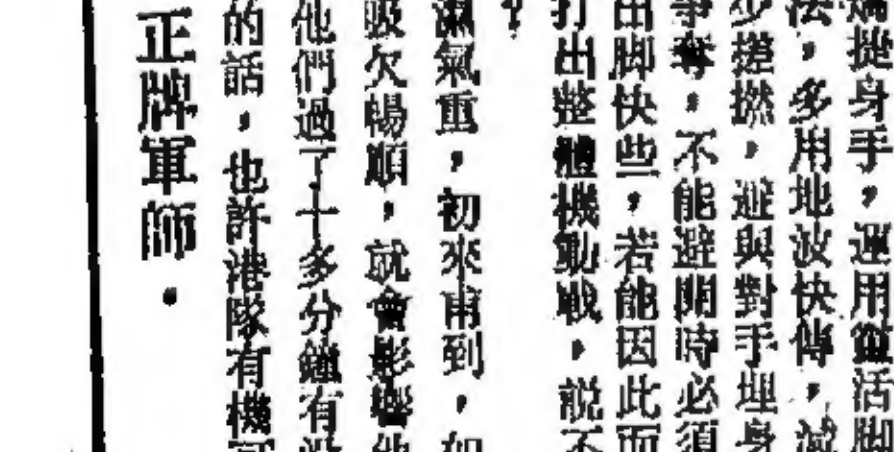 身手，運用靈活脚
法，多用地波快傳，減
少搓撚，避與對手埋身
爭奪，不能避開時必須
出脚快些，若能因此而
打出整體機動戰，說不
？
濕氣重，初來甫到，如
吸欠暢順，就會影響他
他們過了十多分鐘有沒
的話，也許港隊有機可
正牌軍師．